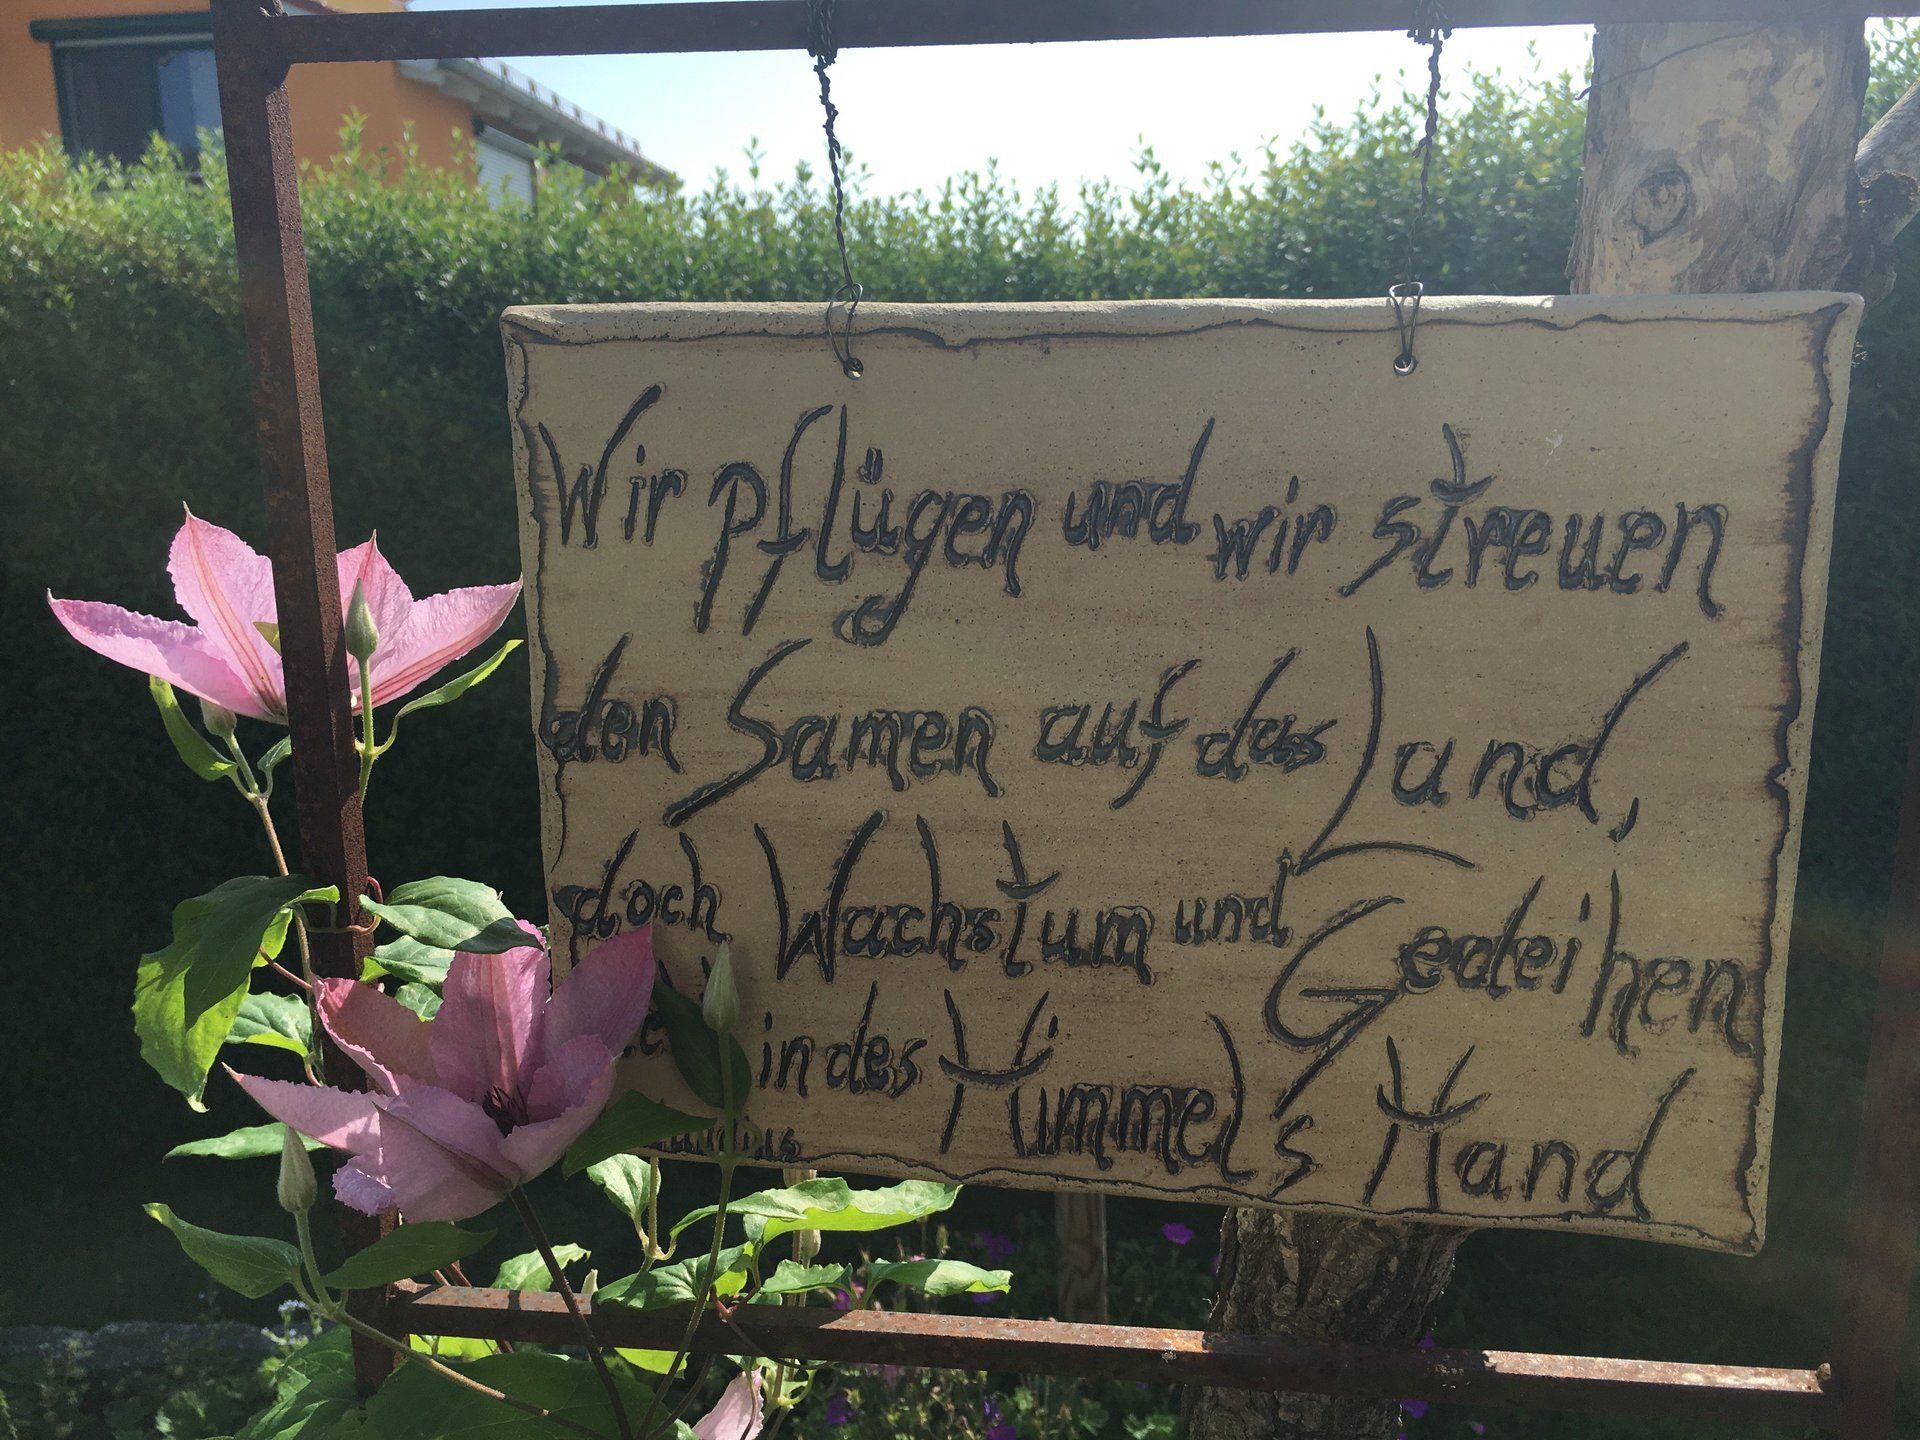 Wir pflügen und wir streuen
den Samen auf das Land,
doch Wachstum und Gedeihen
in des Himmels Hand